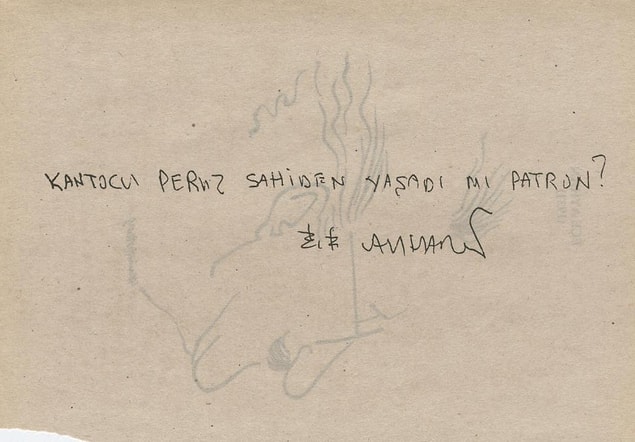 KANTOCU PERUZ SAHİDEN YAŞADI MI PATRON?